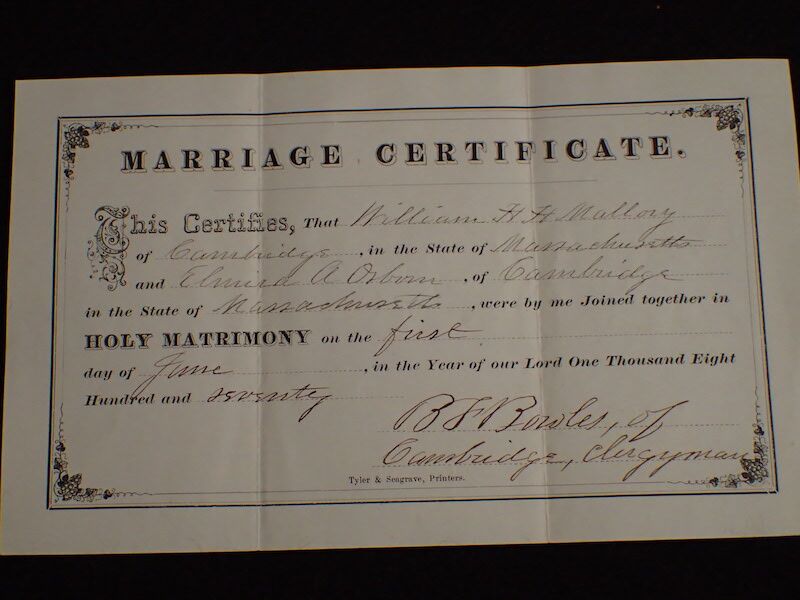 MARRIAGE CERTIFICATE.
This Certifies, That William H H Mallory
of Cambridge, in the State of Massachusetts
and Elmira A Osborn, of Cambridge
in the State of Massachusetts, were by me Joined together in
HOLY MATRIMONY on the first
day of June, in the Year of our Lord One Thousand Eight
Hundred and seventy
B F Bowles, of
Cambridge, clergyman
Tyler & Seagrave, Printers.